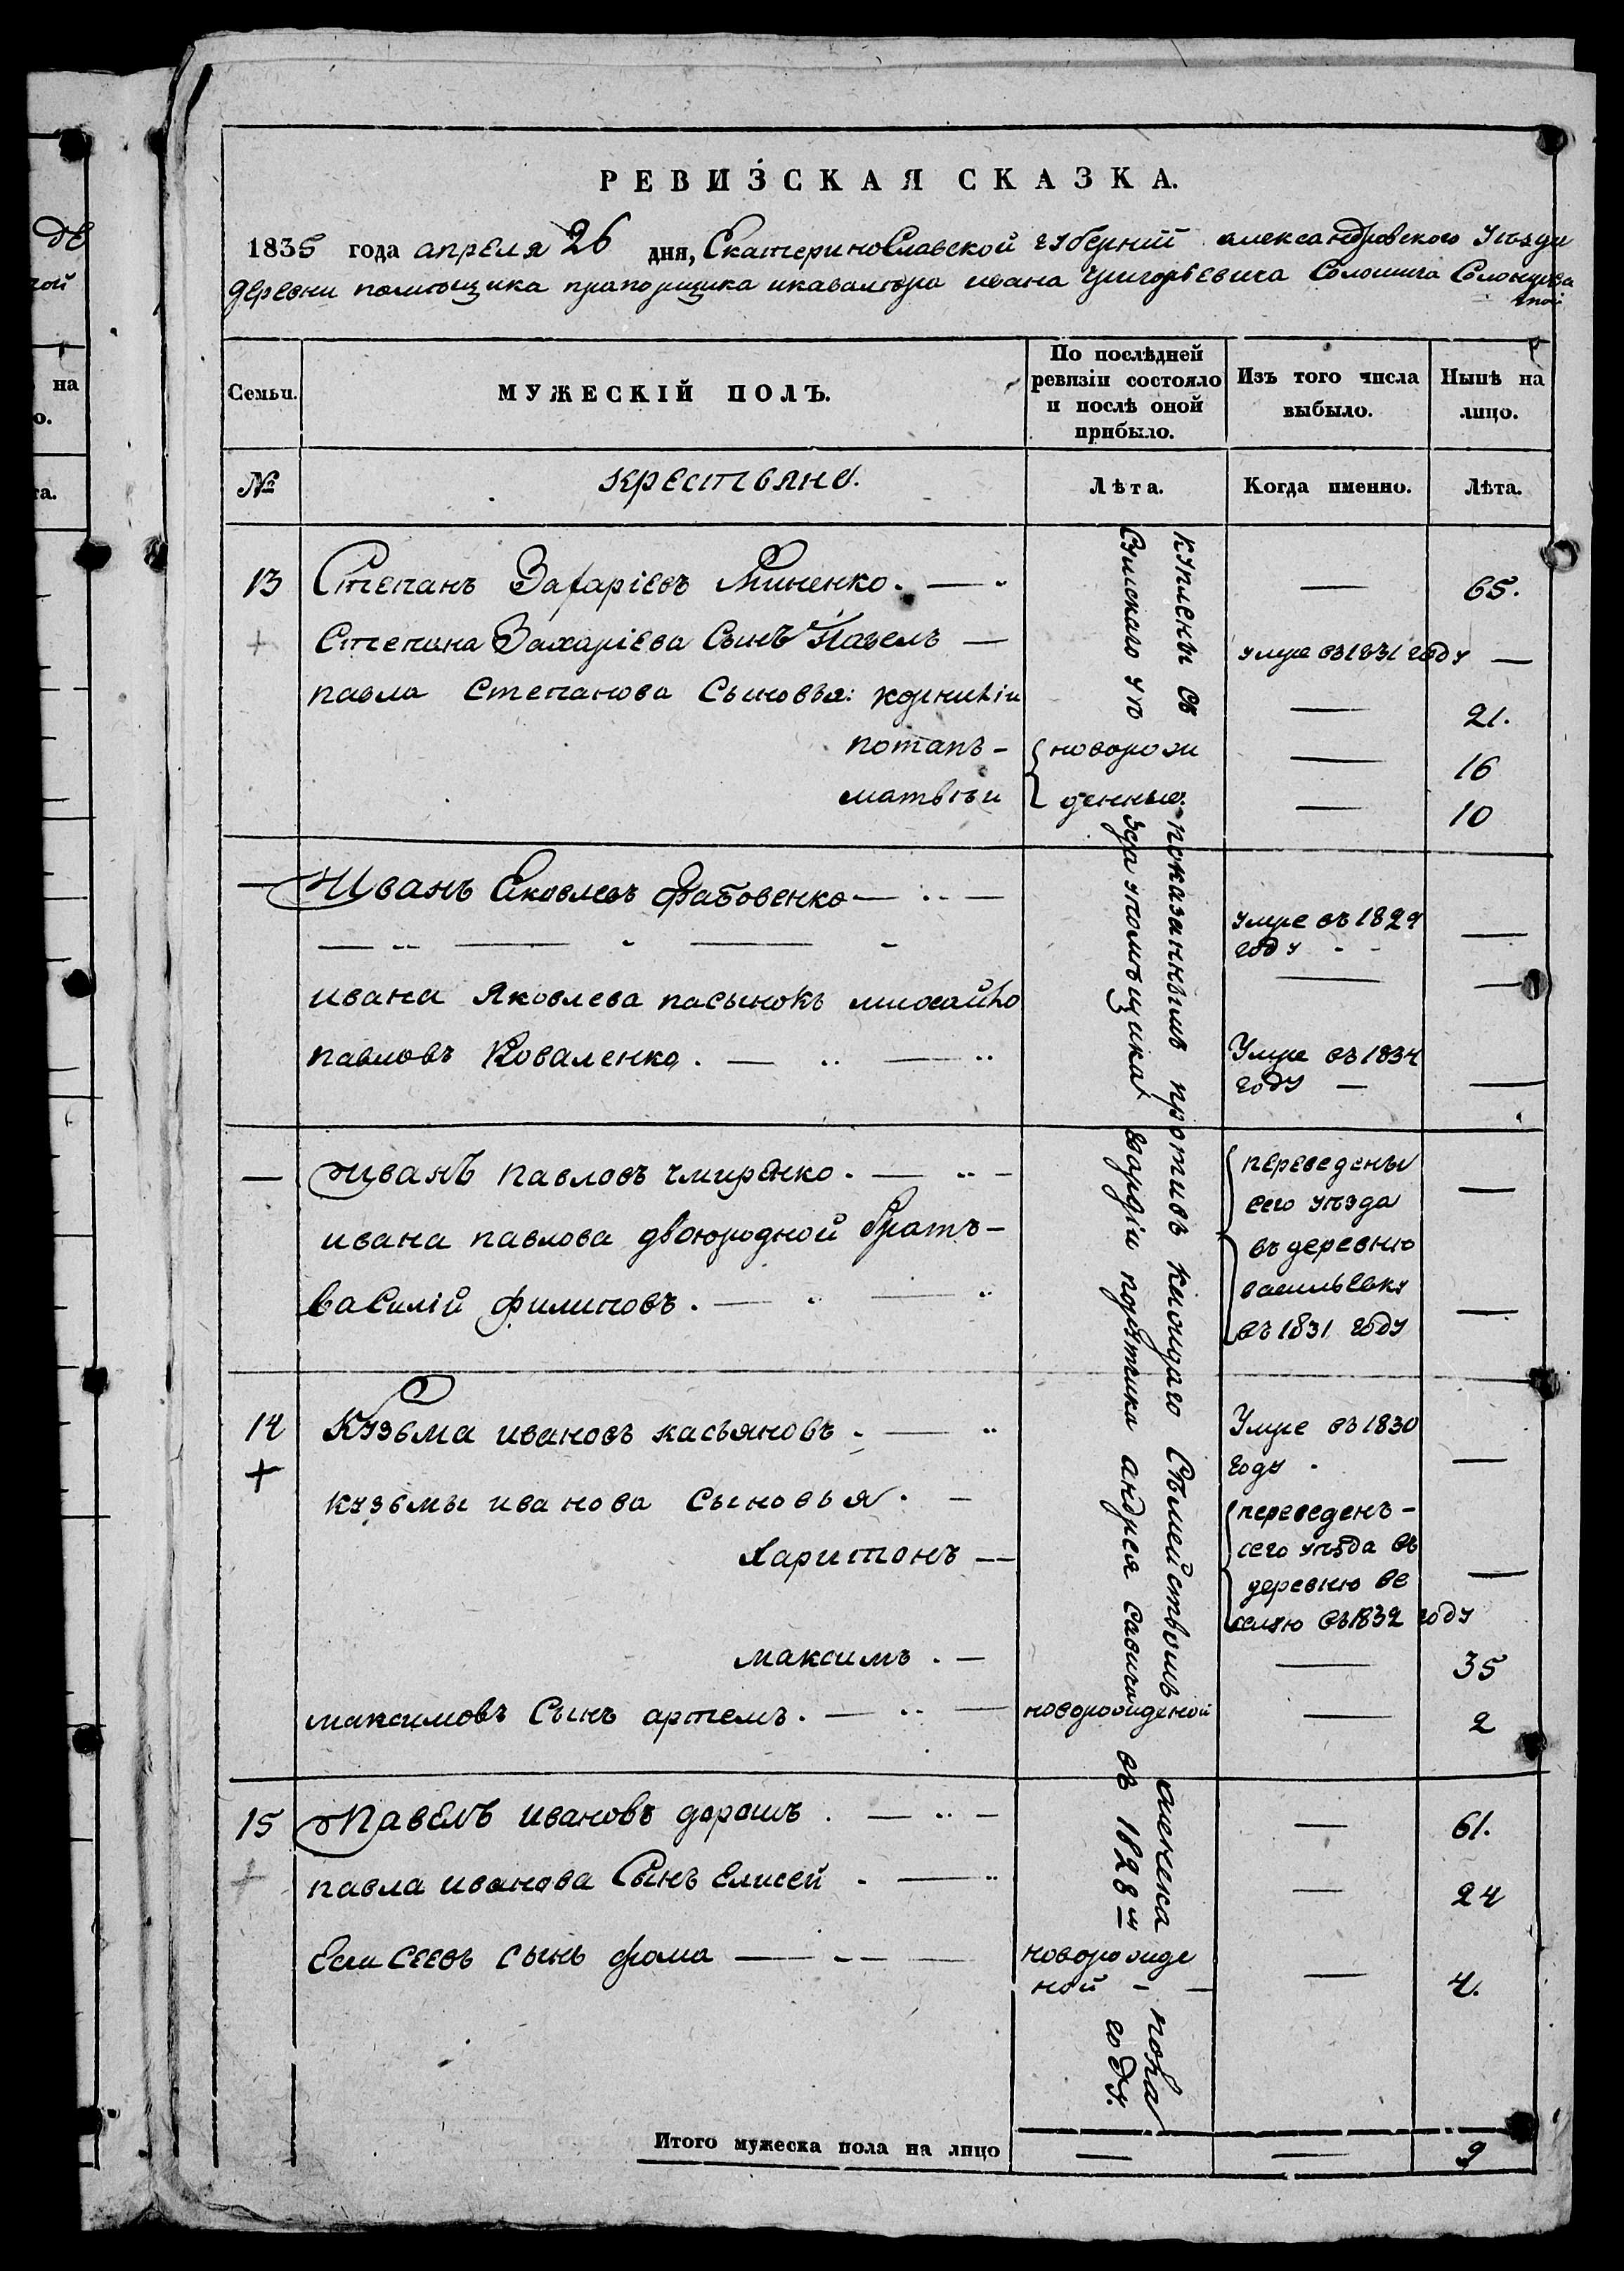 РЕВИЗСКАЯ СКАЗКА.
1835 года апреля 26 дня, Екатеринославской губерний александровского уѣзда
деревни помѣщика прапорщика икавалера ивана григорьевича
Семьи.
МУЖЕСКІЙ ПОЛЪ.
По послѣдней
ревизіи состояло
и послѣ оной
прибыло.
Изъ того числа
выбыло.
Нынѣ на
лицо.
№
крестьяне.
Лѣта.
Когда именно.
Лѣта.
13 Степанъ Захаріевъ Миненко. 65.
Степана Захаріева Сынъ Павелъ умре въ 1831 году
павла Степанова Сыновья: корнилiи 21.
потапъ новорож 16
матвѣи денные. 10
Иванъ Яковлевъ Фабовенко умре въ 1829
году
ивана Яковлева пасынокъ михайло
павловъ Коваленко. Умре въ 1834
году
Иванъ павловъ чмиренко. переведены
сего уѣзда
ивана павлова двоюродной братъ въ деревню
василий филиповъ. васильевку
въ 1831 году
14 Кузьма ивановъ касьяновъ. Умре въ 1830
году.
кузьмы иванова сыновья. переведенъ
Харитонъ сего уѣзда въ
деревню ве
селую въ 1832 году
максимъ. 35
максимовъ Сынъ артемъ. новорожденой 2
15 Павелъ ивановъ дорошъ. 61.
павла иванова Сынъ Елисей. 24
Елисеевъ сынъ фома новорожде
ной 4.
куплены съ показаннымъ противъ каждаго Сѣмействомъ женска пола
Сумскаго уѣзда упомѣщика гвардіи порутчика андрея савича въ 1828 м году.
Итого мужеска пола на лицо 9
на
о.
та.